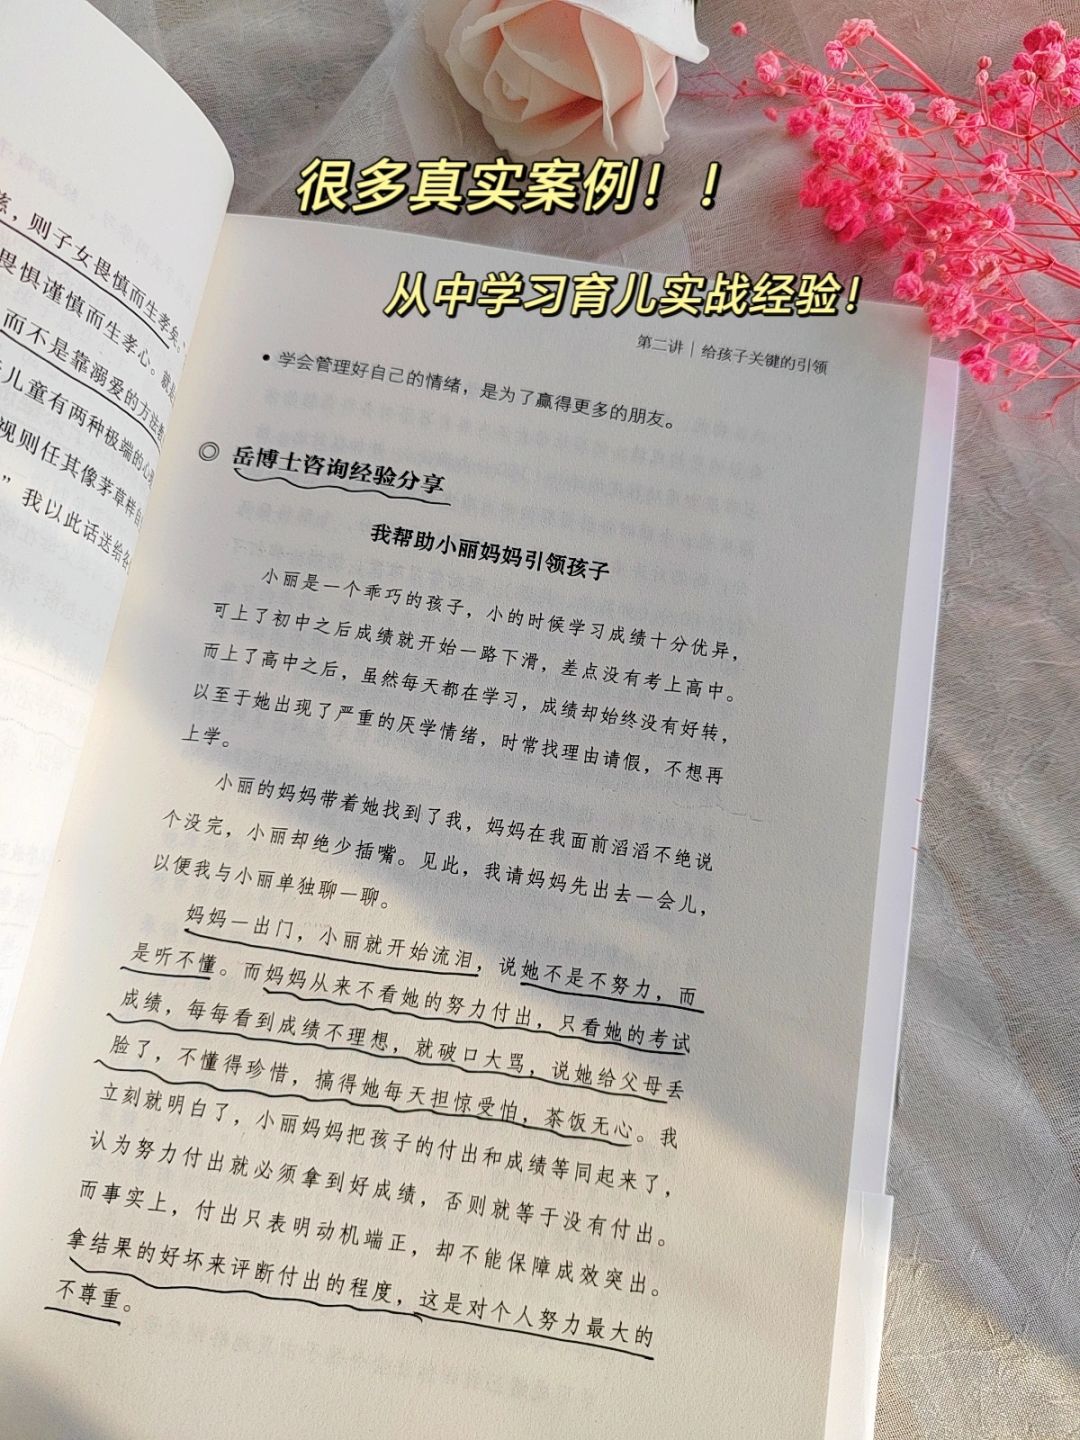 很多真实案例！！
从中学习育儿实战经验！
慈，则子女畏慎而生孝矣。
畏惧谨慎而生孝心。就是
而不是靠溺爱的方法教
儿童有两种极端的心
视则任其像茅草样自
”我以此话送给各
第二讲｜给孩子关键的引领
• 学会管理好自己的情绪，是为了赢得更多的朋友。
岳博士咨询经验分享
我帮助小丽妈妈引领孩子
小丽是一个乖巧的孩子，小的时候学习成绩十分优异，
可上了初中之后成绩就开始一路下滑，差点没有考上高中。
而上了高中之后，虽然每天都在学习，成绩却始终没有好转，
以至于她出现了严重的厌学情绪，时常找理由请假，不想再
上学。
小丽的妈妈带着她找到了我，妈妈在我面前滔滔不绝说
个没完，小丽却绝少插嘴。见此，我请妈妈先出去一会儿，
以便我与小丽单独聊一聊。
妈妈一出门，小丽就开始流泪，说她不是不努力，而
是听不懂。而妈妈从来不看她的努力付出，只看她的考试
成绩，每每看到成绩不理想，就破口大骂，说她给父母丢
脸了，不懂得珍惜，搞得她每天担惊受怕，茶饭无心。我
立刻就明白了，小丽妈妈把孩子的付出和成绩等同起来了，
认为努力付出就必须拿到好成绩，否则就等于没有付出。
而事实上，付出只表明动机端正，却不能保障成效突出。
拿结果的好坏来评断付出的程度，这是对个人努力最大的
不尊重。